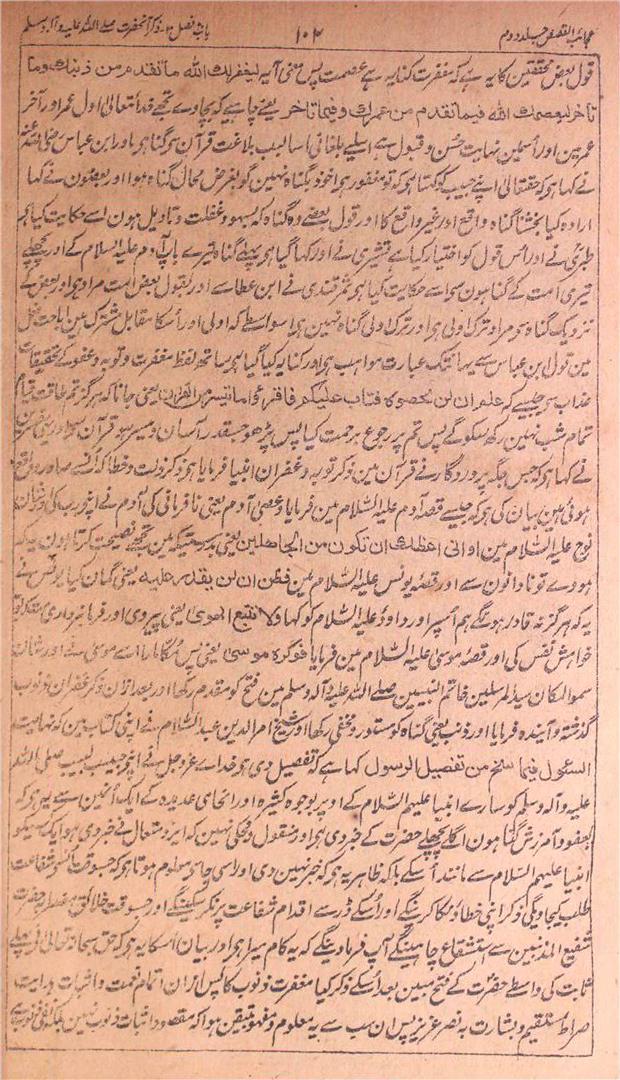 عجائب القصص جلد دوم ۱۰۲ باب فصل ۲ - ذکر آنحضرت صلے اللہ علیہ وآلہ وسلم
قول بعض محققین کا یہ ہے کہ مغفرت کنایہ ہے عصمت پس معنی آیہ لیغفر لك الله ما تقدم من ذنبك وما
تاخر لیعصمك الله فیما تقدم من عمرك وفیما تاخر یعنے چاہیے کہ بچاوے تجھے خدا تعالیٰ اول عمر اور آخر
عمر مین اور اسمین نہایت حسن و قبول ہے اسلیے بلغا نی اسالیب بلاغت قرآن سے گنا ہو اور ابن عباس رضی اللہ عنہ
نے کہا ہو کہ حقتعالیٰ اپنے حبیب کو کہتا ہو کہ تو مغفور ہو ماخوذ بگناہ نہین گو بفرض محال گناہ ہوا اور بعضون نے کہا
ارادہ کیا بخشنا گناہ واقع اور غیر واقع کا اور قول بعضے وہ گناہ کہ بسہو و غفلت و تاویل ہون اسے حکایت کیا ہے
طبری نے اور اس قول کو اختیار کیا ہے قشیری نے اور کہا گیا ہو پہلے گناہ تیرے باپ آدم علیہ السلام کے اور پچھلے
تیری امت کے گناہون سے اسے حکایت کیا ہو سمرقندی نے ابن عطا سے اور بقول بعض امت مراد ہو اور بعض کے
نزدیک گناہ سے مراد ترک اولی ہو اور ترک اولی گناہ نہین ہو اسواسطے کہ اولی اور اسکا مقابل مشترک ہین اباحت
مین قول ابن عباس سے یہانتک عبارت مواہب ہو اور کنایہ کیا گیا ہو ساتھ لفظ مغفرت و توبہ و عفو کے تخفیفات
عذاب سے جیسے کہ علم ان لن تحصوه فتاب علیکم فاقرءوا ما تیسر من القران یعنی جانا کہ ہرگز تم طاقت قیام
تمام شب نہین رکھ سکوگے پس تم پر رجوع برحمت کیا پس پڑھو جسقدر آسان و میسر ہو قرآن سے اور بعض
نے کہا ہو کہ جس جگہ پروردگار نے قرآن مین ذکر توبہ و غفران انبیا فرمایا ہو ذکر ذلت و خطا کہ انسے صادر و واقع
ہوئی ہین بیان کی ہو کہ جیسے قصہ آدم علیہ السلام مین فرمایا وعصی آدم یعنی نافرمانی کی آدم نے اپنے رب کی اور شان
نوح علیہ السلام مین انی اعظك ان تکون من الجاهلین یعنی بدرستیکہ مین تجھے نصیحت کرتا ہون یہ کہ
ہووے تو نادانون سے اور قصہ یونس علیہ السلام مین فظن ان لن نقدر علیه یعنی گمان کیا یونس نے
یہ کہ ہرگز نہ قادر ہونگے ہم اسپر اور داؤد علیہ السلام کو کہا ولا تتبع الهوى یعنی پیروی اور فرمانبرداری مت کر تو
خواہش نفس کی اور قصہ موسیٰ علیہ السلام مین فرمایا فوکزه موسیٰ یعنی پس مکا مارا اسے موسیٰ نے اور شان
سمو المکان سید المرسلین خاتم النبیین صلے اللہ علیہ وآلہ وسلم مین فتح کو مقدم رکھا اور بعد ازان ذکر غفران ذنوب
گذشتہ و آیندہ فرمایا اور ذنب یعنی گناہ کو مستور و مخفی رکھا اور شیخ عز الدین عبد السلام نے اپنی کتاب مین کہ نہایت
السئول فیما سنح من تفضیل الرسول کہا ہے کہ تفضیل دی ہو خداے عز و جل نے اپنے حبیب لبیب صلی اللہ
علیہ وآلہ وسلم کو سارے انبیا علیہم السلام کے اوپر بوجوہ کثیرہ اور انحای عدیدہ کے ایک انمین سے یہ ہو کہ
بعفو و آمرزش گناہون اگلے پچھلے حضرت کے خبر دی ہو اور منقول و محکی نہین کہ ایزد متعال نے خبر دی ہو ایک کو
انبیا علیہم السلام سے مانند اسکے بلکہ ظاہر یہ ہو کہ خبر نہین دی اور اسی جا سے معلوم ہوتا ہو کہ جسوقت انسے شفاعت
طلب کیجاویگی ذکر اپنی خطاؤنکا کرینگے اور اسکے ڈر سے اقدام شفاعت پر نکر سکینگے اور جسوقت خلائق مضطر حضرت
شفیع المذنبین سے استشفاع چاہینگے آپ فرماوینگے کہ یہ کام میرا ہو اور بیان اسکا یہ ہو کہ حق سبحانہ تعالیٰ نے پہلے
ثابت کی واسطے حضرت کے فتح مبین بعد اسکے ذکر کیا مغفرت ذنوب کا پس ازان اتمام نعمت و اثبات ہدایت
صراط مستقیم و بشارت بہ نصر عزیز پس ان سب سے یہ معلوم و مفہوم متیقن ہوا کہ مقصود اثبات ذنوب نہین بلکہ نفی ذنوب ہے